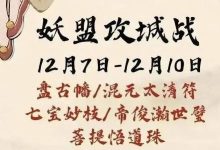 妖盟攻城战
12月7日-12月10日
盘古幡/混元太清符
七宝妙枝/帝俊瀚世璧
菩提悟道珠